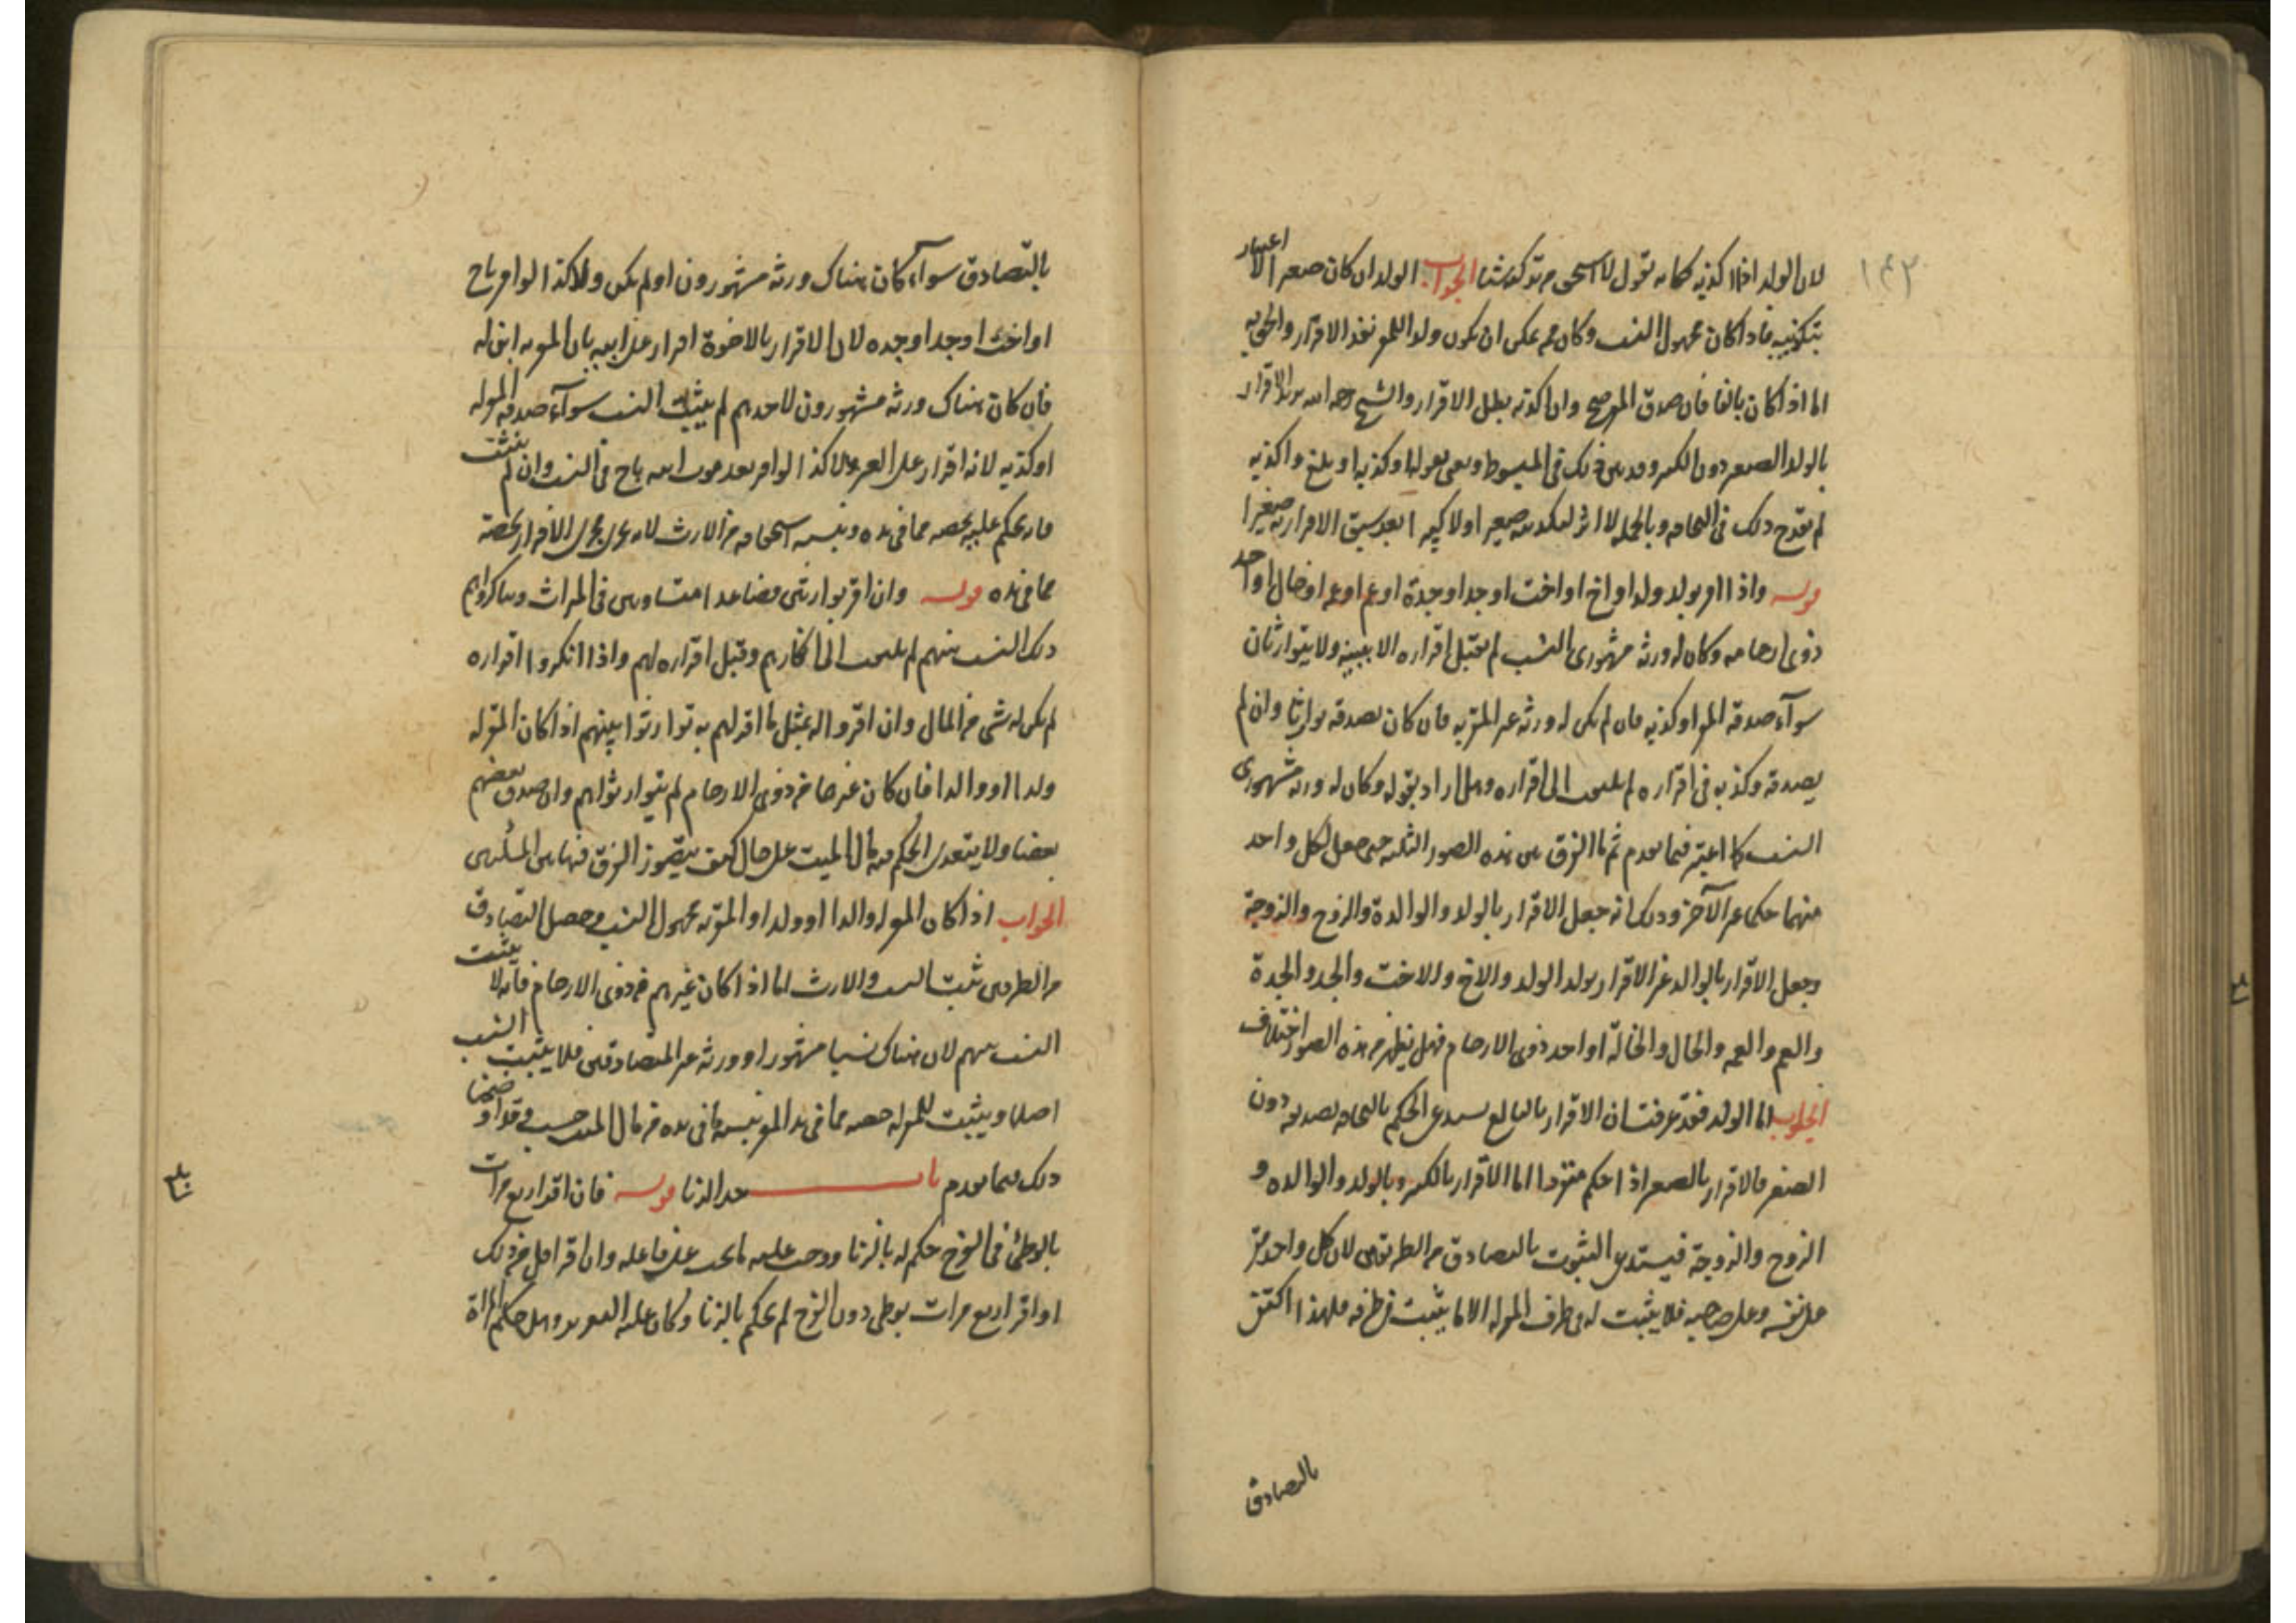 ١٤٢
لان الولد اذا اكذبه كما له يقول لا استحق من تركته شيئا الجواب الولد ان كان صغيرا لا اعتبار
بتكذيبه فاذا كان مجهول النسب وكان ممن يمكن ان يكون ولدا للمقر نفذ الاقرار والحق به
اما اذا كان بالغا فان صدق المقر صح وان اكذبه بطل الاقرار والشيخ رحمه الله يريد الاقرار
بالولد الصغير دون الكبير وقد بين ذلك في المبسوط ويعني بقوله او كذبه او بلغ واكذبه
لم يقدح ذلك في التحاقه وبالجملة لا اثر لتكذيبه صغيرا ولا كبيرا بعد سبق الاقرار به صغيرا
قوله واذا اقر بولد ولد او اخ او اخت او جد او جدة او عم او عمة او خال او احد
ذوي ارحامه وكان له ورثة مشهوري النسب لم يقبل اقراره الا ببينة ولا يتوارثان
سوآء صدقه المقر او كذبه فان لم يكن له ورثة غير المقر به فان كان يصدقه توارثا وان لم
يصدقه وكذبه في اقراره لم يلتفت الى اقراره وهل اراد بقوله وكان له ورثة مشهوري
النسب كما اعتبر فيما تقدم ثم ما الفرق بين هذه الصور الثلثة حتى جعل لكل واحد
منهما حكما غير الآخر وذلك انه جعل الاقرار بالولد والوالدة والزوج والزوجة
وجعل الاقرار بالوالد غير الاقرار بولد الولد والاخ والاخت والجد والجدة
والعم والعمه والخال والخالة او احد ذوي الارحام فهل يظهر من هذه الصور اختلاف
الجواب اما الولد فقد عرفت ان الاقرار بالبالغ يستدعي الحكم بالتحاقه تصديقه دون
الصغير فالاقرار بالصغير اذا حكم منفردا اما الاقرار بالكبير وبالولد والوالده و
الزوج والزوجة فيستدعى الثبوت بالتصادق من الطريقين لان كل واحد مقر
على نفسه وعلى صاحبه فلا يثبت له من طرف المقر له الا ما يثبت من طرفه فلهذا اكتفى
بالتصادق
بالتصادق سوآء كان هناك ورثة مشهورون او لم يكن ولا كذا لو اقر باخ
او اخت او جد او جده لان الاقرار بالاخوة اقرار على ابيه بان المقر به ابن له
فان كان هناك ورثة مشهورون لاحدهم لم يثبت النسب سوآء صدقه المقر له
او كذبه لانه اقرار على الغير ولا كذا لو اقر بعد موت ابيه باخ في النسب وان لم يثبت
فانه يحكم عليه بحصه مما في يده ونسبه استحقاقه من الارث لانه جرى مجرى الاقرار بحصته
مما في يده قوله وان اقر بوارثين فصاعدا متساويين في الميراث وتناكروا هم
ذلك النسب بينهم لم يلتفت الى انكارهم وقبل اقراره لهم واذا انكروا اقراره
لم يكن له شيء من المال وان اقروا له بمثل ما اقر لهم به توارثوا بينهم اذا كان المقر له
ولدا او والدا فان كان غيرهما من ذوي الارحام لم يتوارثوا هم وان صدق بعضهم
بعضا ولا يتعدى الحكم فيه مال الميت على حال كيف يتصور الفرق فيها بين المسئلتين
الجواب اذا كان المقر له والدا او ولدا او المقر به مجهول النسب وحصل التصادق
من الطرفين ثبت النسب والارث اما اذا كان غيرهم من ذوي الارحام فانه لا يثبت
النسب بينهم لان هناك نسبا مشهورا وورثة غير المتصادقين فلا يثبت النسب
اصلا ويثبت للمقر له حصه مما في يد المقر بنسبة ما في يده من مال الميت حسب وقد اوضحنا
ذلك فيما تقدم باب حد الزنا قوله فان اقر اربع مرات
بالوطئ في الفرج حكم له بالزنا ووجب عليه ما يجب على فاعله وان اقر اقل من ذلك
او اقر اربع مرات بوطي دون الفرج لم يحكم بالزنا وكان عليه التعزير وهل حكم المراة